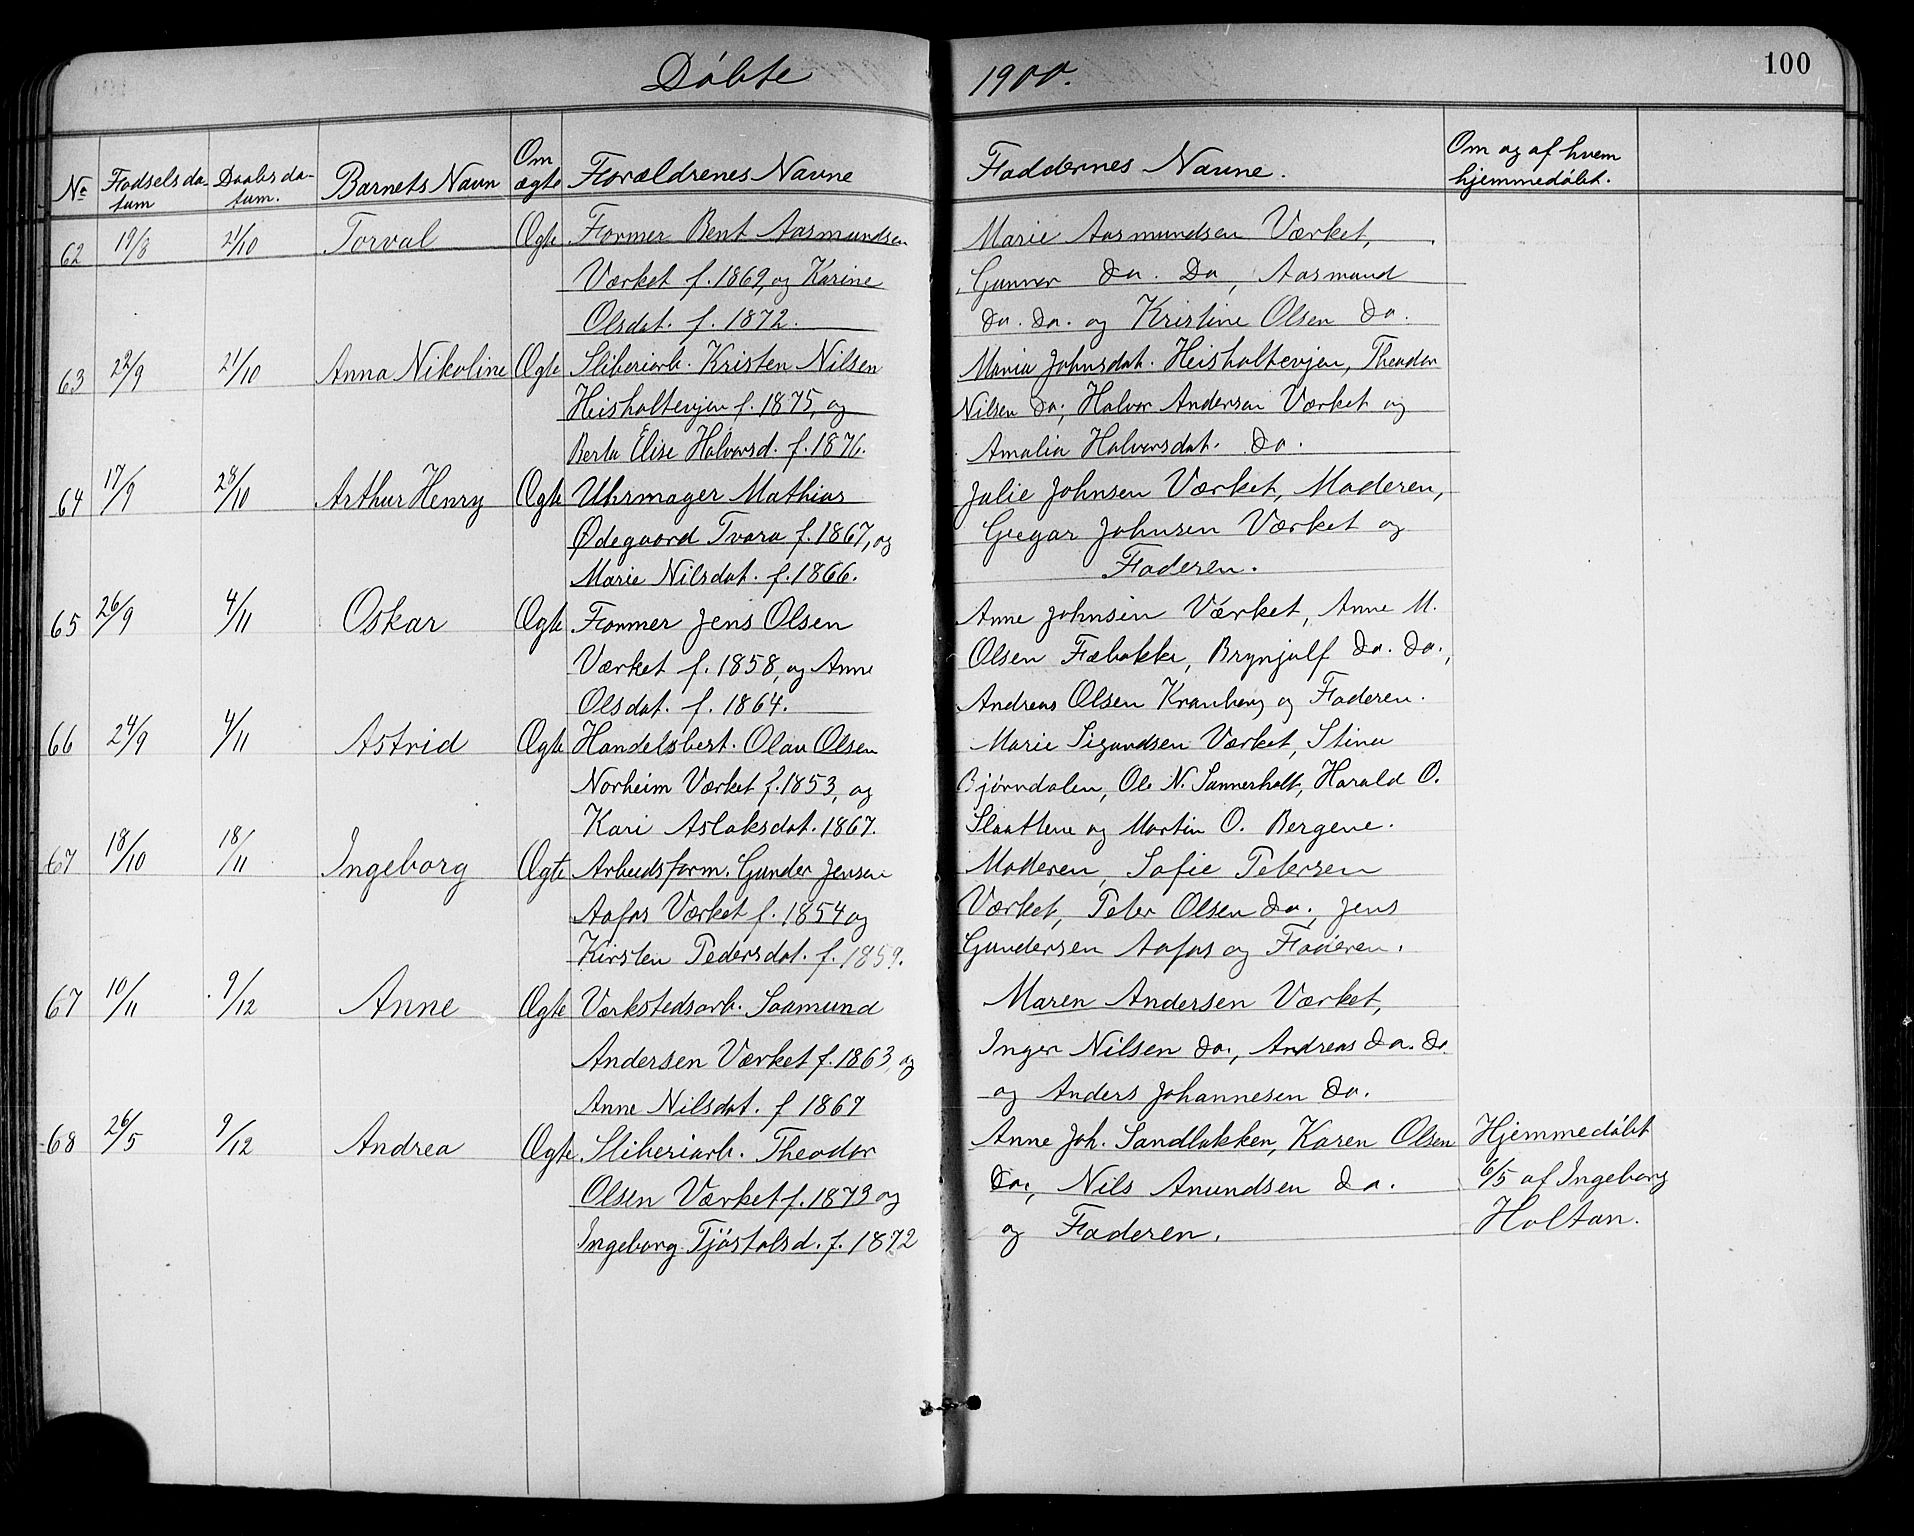 Döbte 1900.
100
No Fødselsdatum Daabsdatum. Barnets Navn Om ægte Forældrenes Navne Faddernes Navne. Om og af hvem hjemmedøbt.
62 19/8 21/10 Torval Ægte Former Bent Aasmundsen Marie Aasmundsen Værket,
Værket f. 1869, og Karine Gunner do. Do, Aasmund
Olsdat. f. 1872. do. do. og Kristine Olsen do.
63 22/9 21/10 Anna Nikoline Ægte Sliberiarb. Kristen Nilsen Maria Johnsdat. Heisholtevjen, Theodor
Heisholtevjen f. 1875, og Nilsen do, Halvor Andersen Værket og
Berta Elise Halvorsd. f. 1876. Amalia Halvorsdat. do.
64 17/9 28/10 Arthur Henry Ægte Uhrmager Mathias Julie Johnsen Værket, Moderen,
Ødegaard Tvara f. 1867, og Gregar Johnsen Værket og
Marie Nilsdat. f. 1866. Faderen.
65 26/9 4/11 Oskar Ægte Former Jens Olsen Anne Johnsen Værket, Anne M.
Værket f. 1858, og Anne Olsen Fæbakke, Brynjulf do. do.,
Olsdat. f. 1864. Andreas Olsen Kranberg og Faderen.
66 24/9 4/11 Astrid Ægte Handelsbest. Olav Olsen Marie Sigundsen Værket, Stina
Norheim Værket f. 1853, og Bjørndalen, Ole N. Sannerholt, Harald O.
Kari Aslaksdat. 1867. Slaattene og Martin O. Bergene.
67 18/10 18/11 Ingeborg Ægte Arbeidsform. Gunder Jensen Moderen, Sofie Petersen
Aafos Værket f. 1854 og Værket, Peter Olsen do., Jens
Kirsten Pedersdat. f. 1859. Gundersen Aafos og Faderen.
67 10/11 9/12 Anne Ægte Værkstedsarb. Saamund Maren Andersen Værket,
Andersen Værket f. 1863, og Inger Nilsen do., Andreas do. do.
Anne Nilsdat. f 1867 og Anders Johannesen do.
68 26/5 9/12 Andrea Ægte Sliberiarb. Theodor Anne Joh. Sandbakken, Karen Olsen Hjemmedøbt
Olsen Værket f. 1873 og do., Nils Anundsen do. 6/5 af Ingeborg
Ingeborg Tjöstolsd. f. 1872 og Faderen. Holtan.